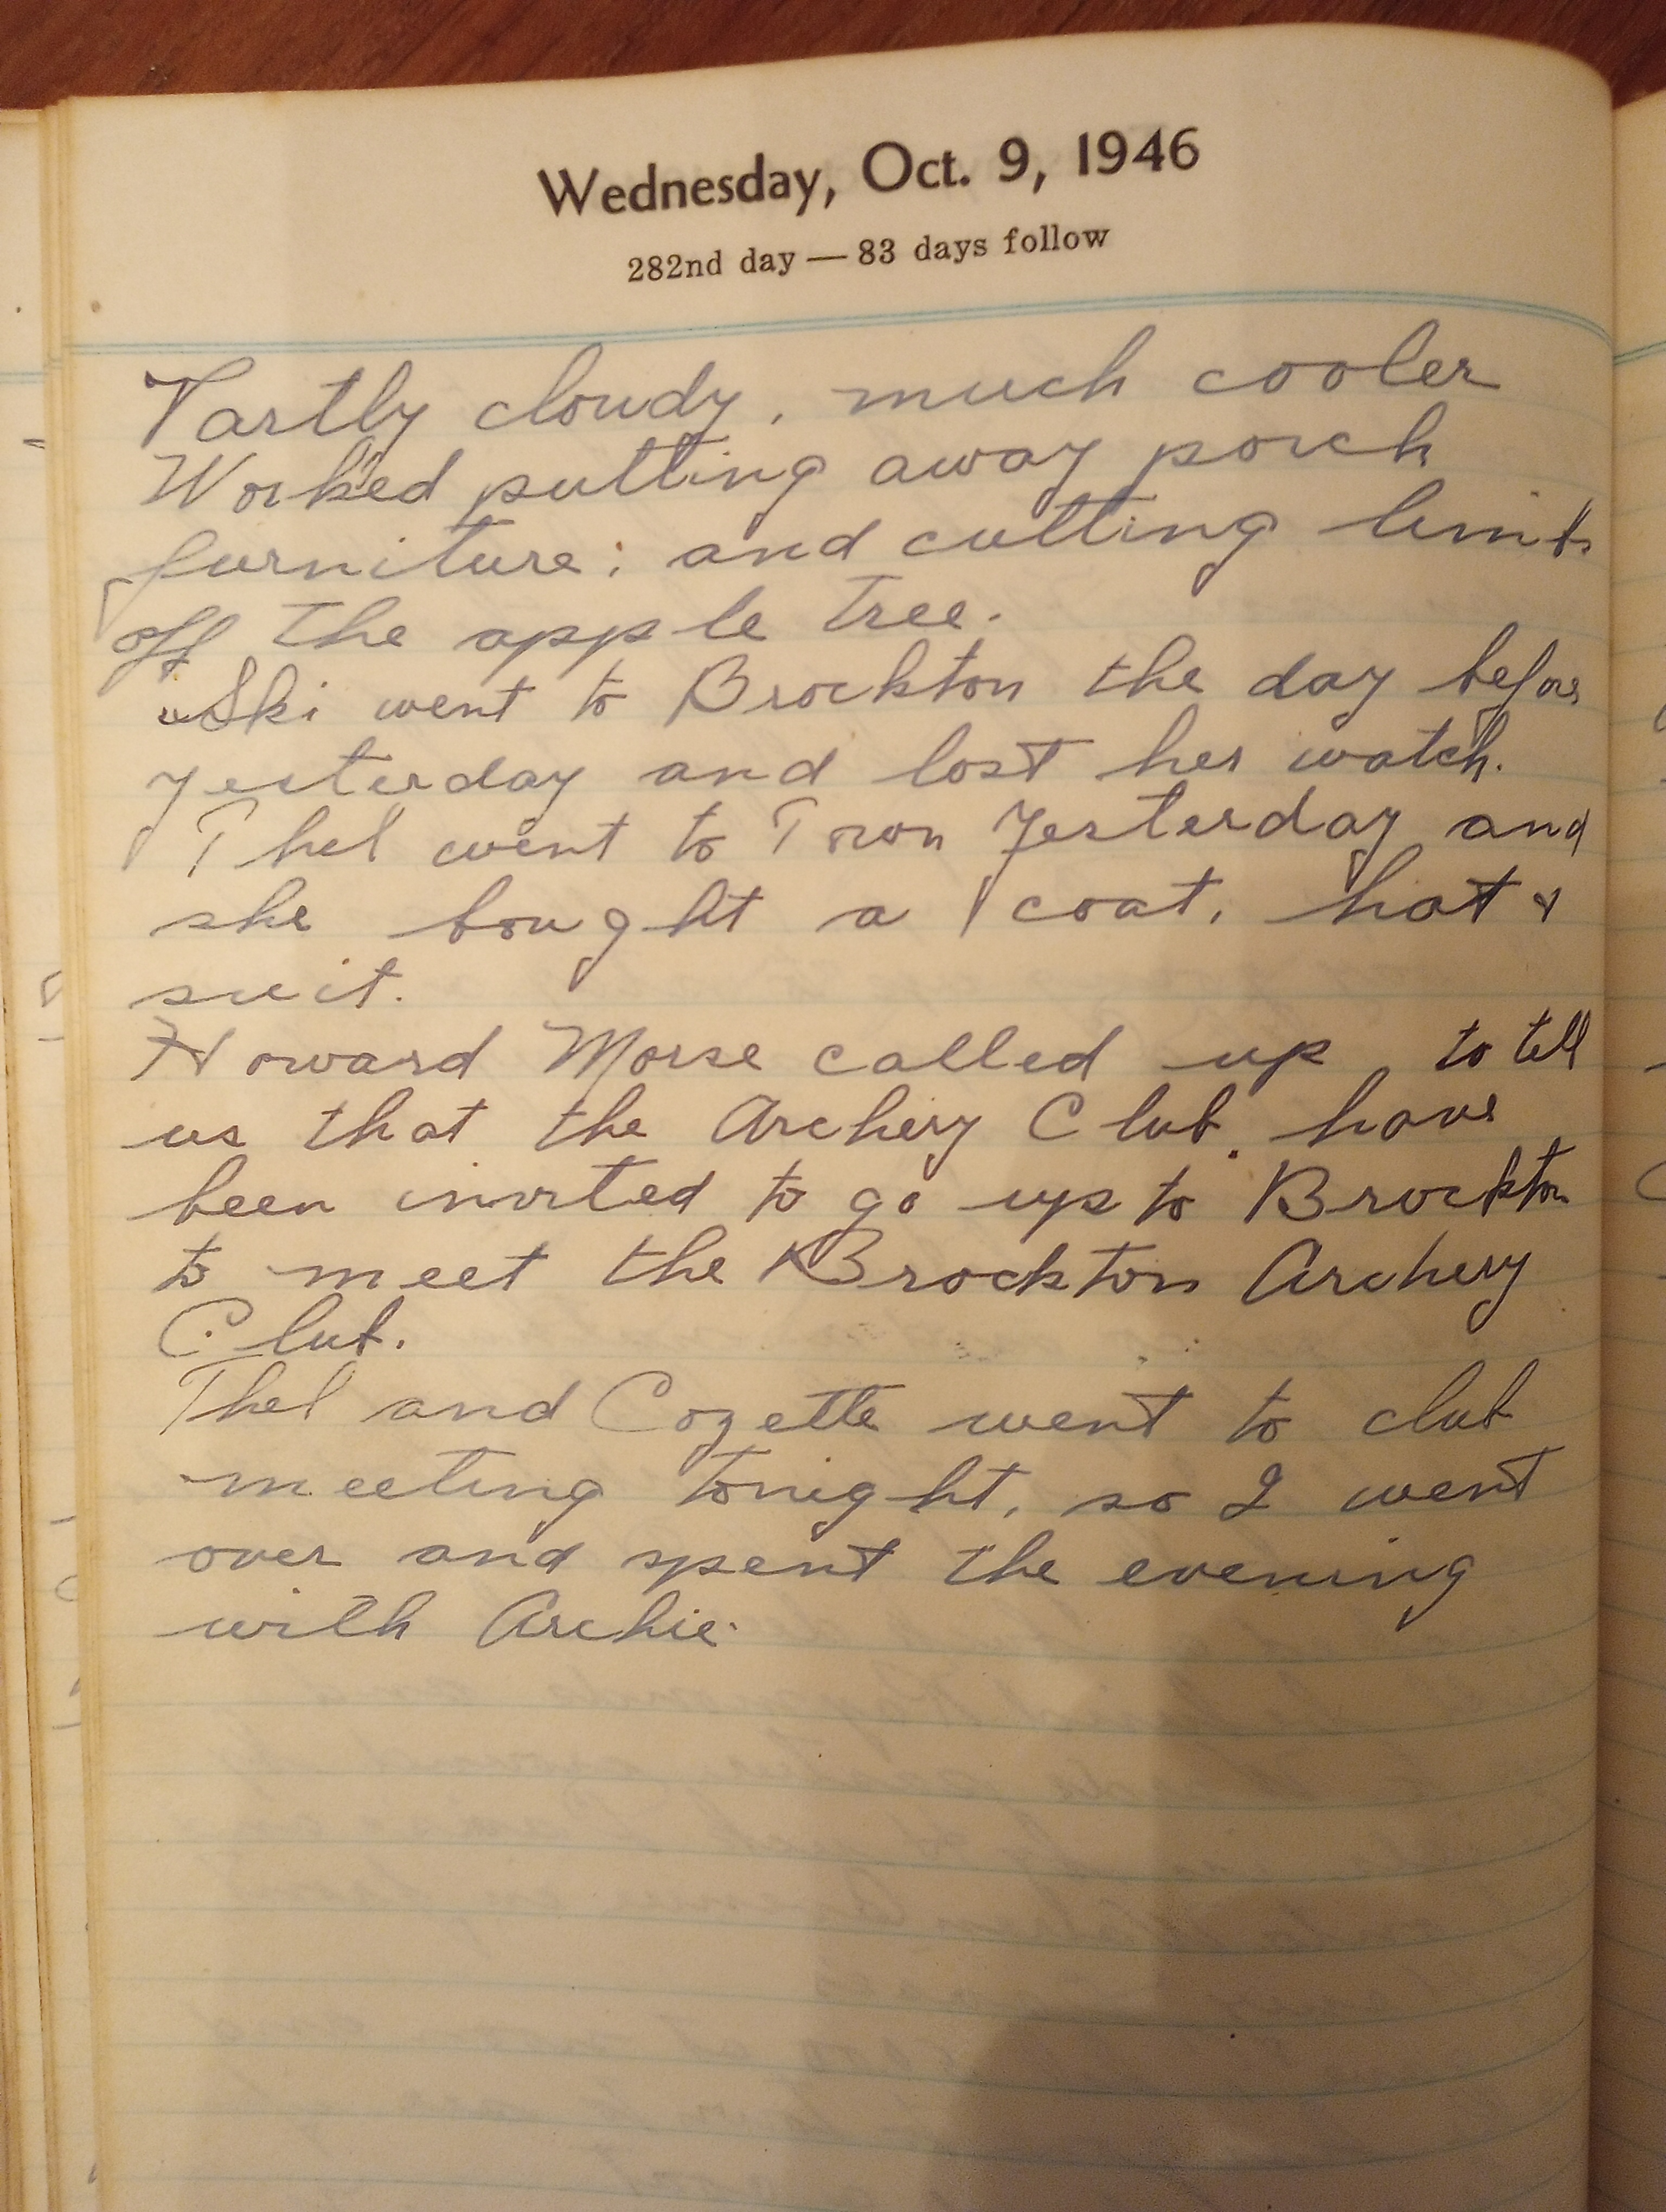 Wednesday, Oct. 9, 1946
282nd day — 83 days follow
Partly cloudy, much cooler
Worked putting away porch
furniture; and cutting limbs
off the apple tree.
"Ski went to Brockton the day before
yesterday and lost her watch.
Thel went to Town Yesterday and
she bought a coat, hat &
suit.
Howard Morse called up to tell
us that the Archery Club have
been invited to go up to Brockton
to meet the Brockton Archery
Club.
Thel and Cozette went to club
meeting tonight, so I went
over and spent the evening
with Archie.